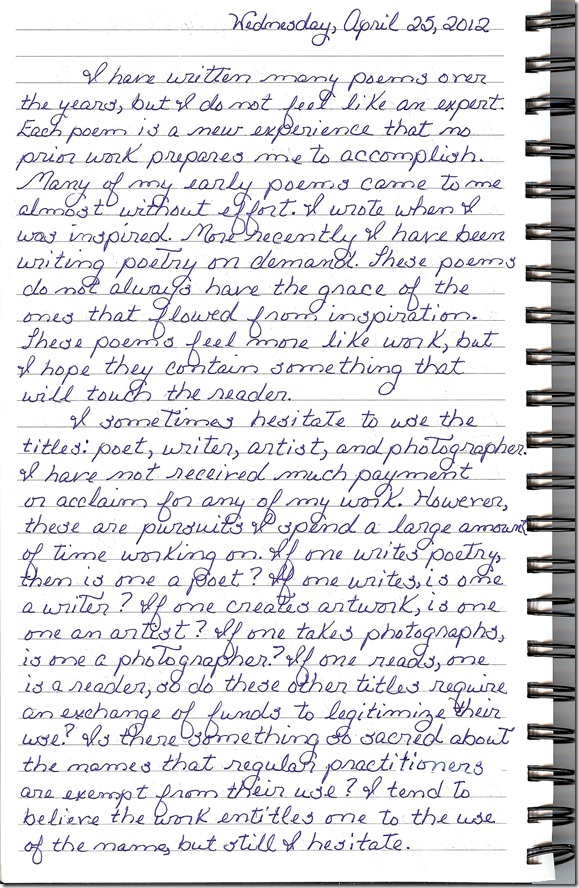 Wednesday, April 25, 2012
I have written many poems over
the years, but I do not feel like an expert.
Each poem is a new experience that no
prior work prepares me to accomplish.
Many of my early poems came to me
almost without effort. I wrote when I
was inspired. More recently I have been
writing poetry on demand. These poems
do not always have the grace of the
ones that flowed from inspiration.
These poems feel more like work, but
I hope they contain something that
will touch the reader.
I sometimes hesitate to use the
titles: poet, writer, artist, and photographer.
I have not received much payment
or acclaim for any of my work. However,
these are pursuits I spend a large amount
of time working on. If one writes poetry,
then is one a poet? If one writes, is one
a writer? If one creates artwork, is one
one an artist? If one takes photographs,
is one a photographer? If one reads, one
is a reader, so do these other titles require
an exchange of funds to legitimize their
use? Is there something so sacred about
the names that regular practitioners
are exempt from their use? I tend to
believe the work entitles one to the use
of the name, but still I hesitate.